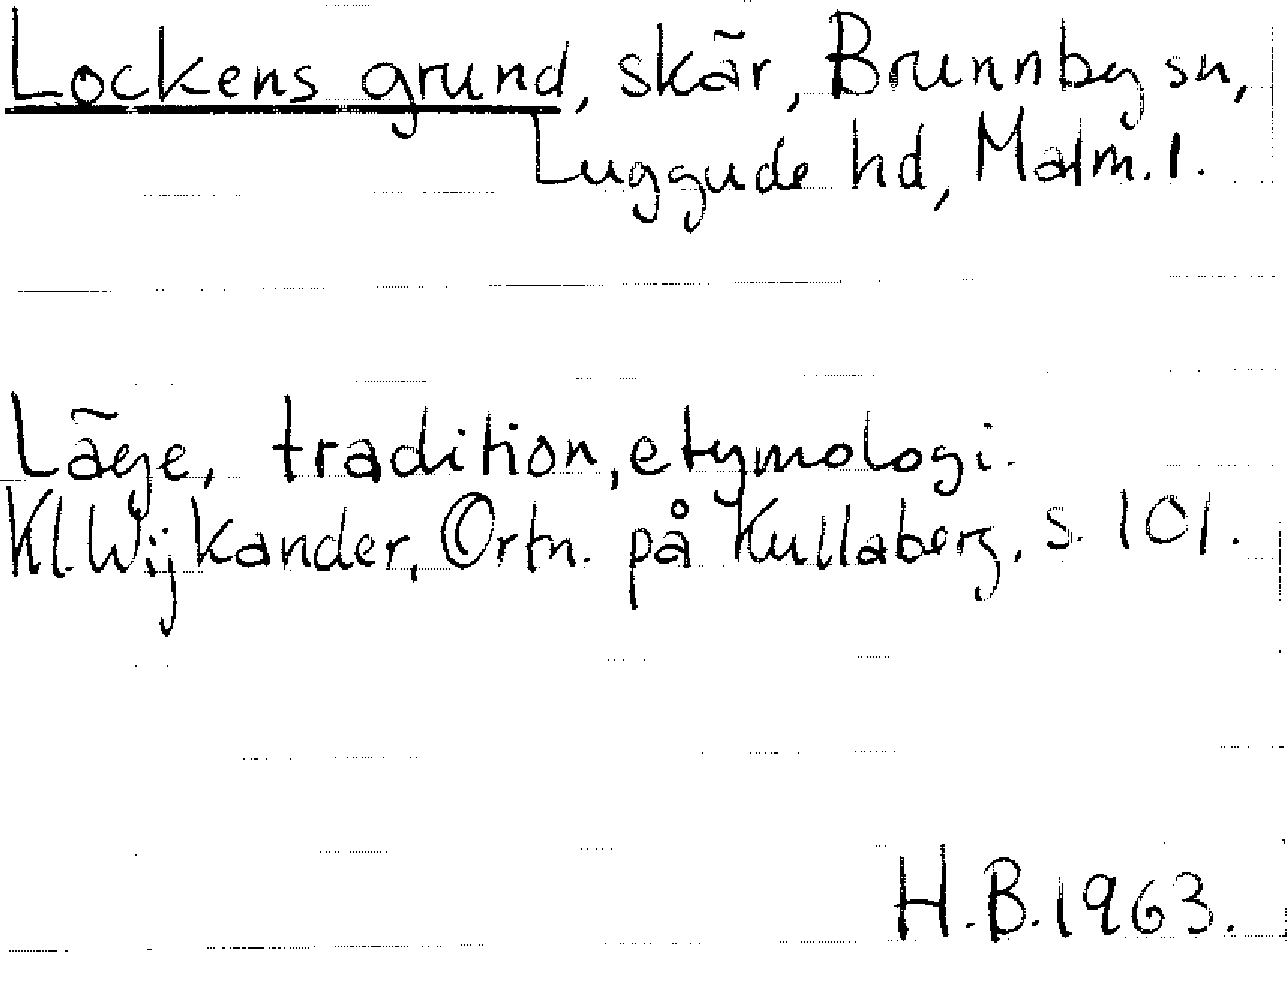 Lockens grund, skär, Brunnby sn,
Luggude hd, Malm. l.
Läge, tradition, etymologi.
Kl Wijkander, Ortn. på Kullaberg, s. 101.
H.B. 1963.